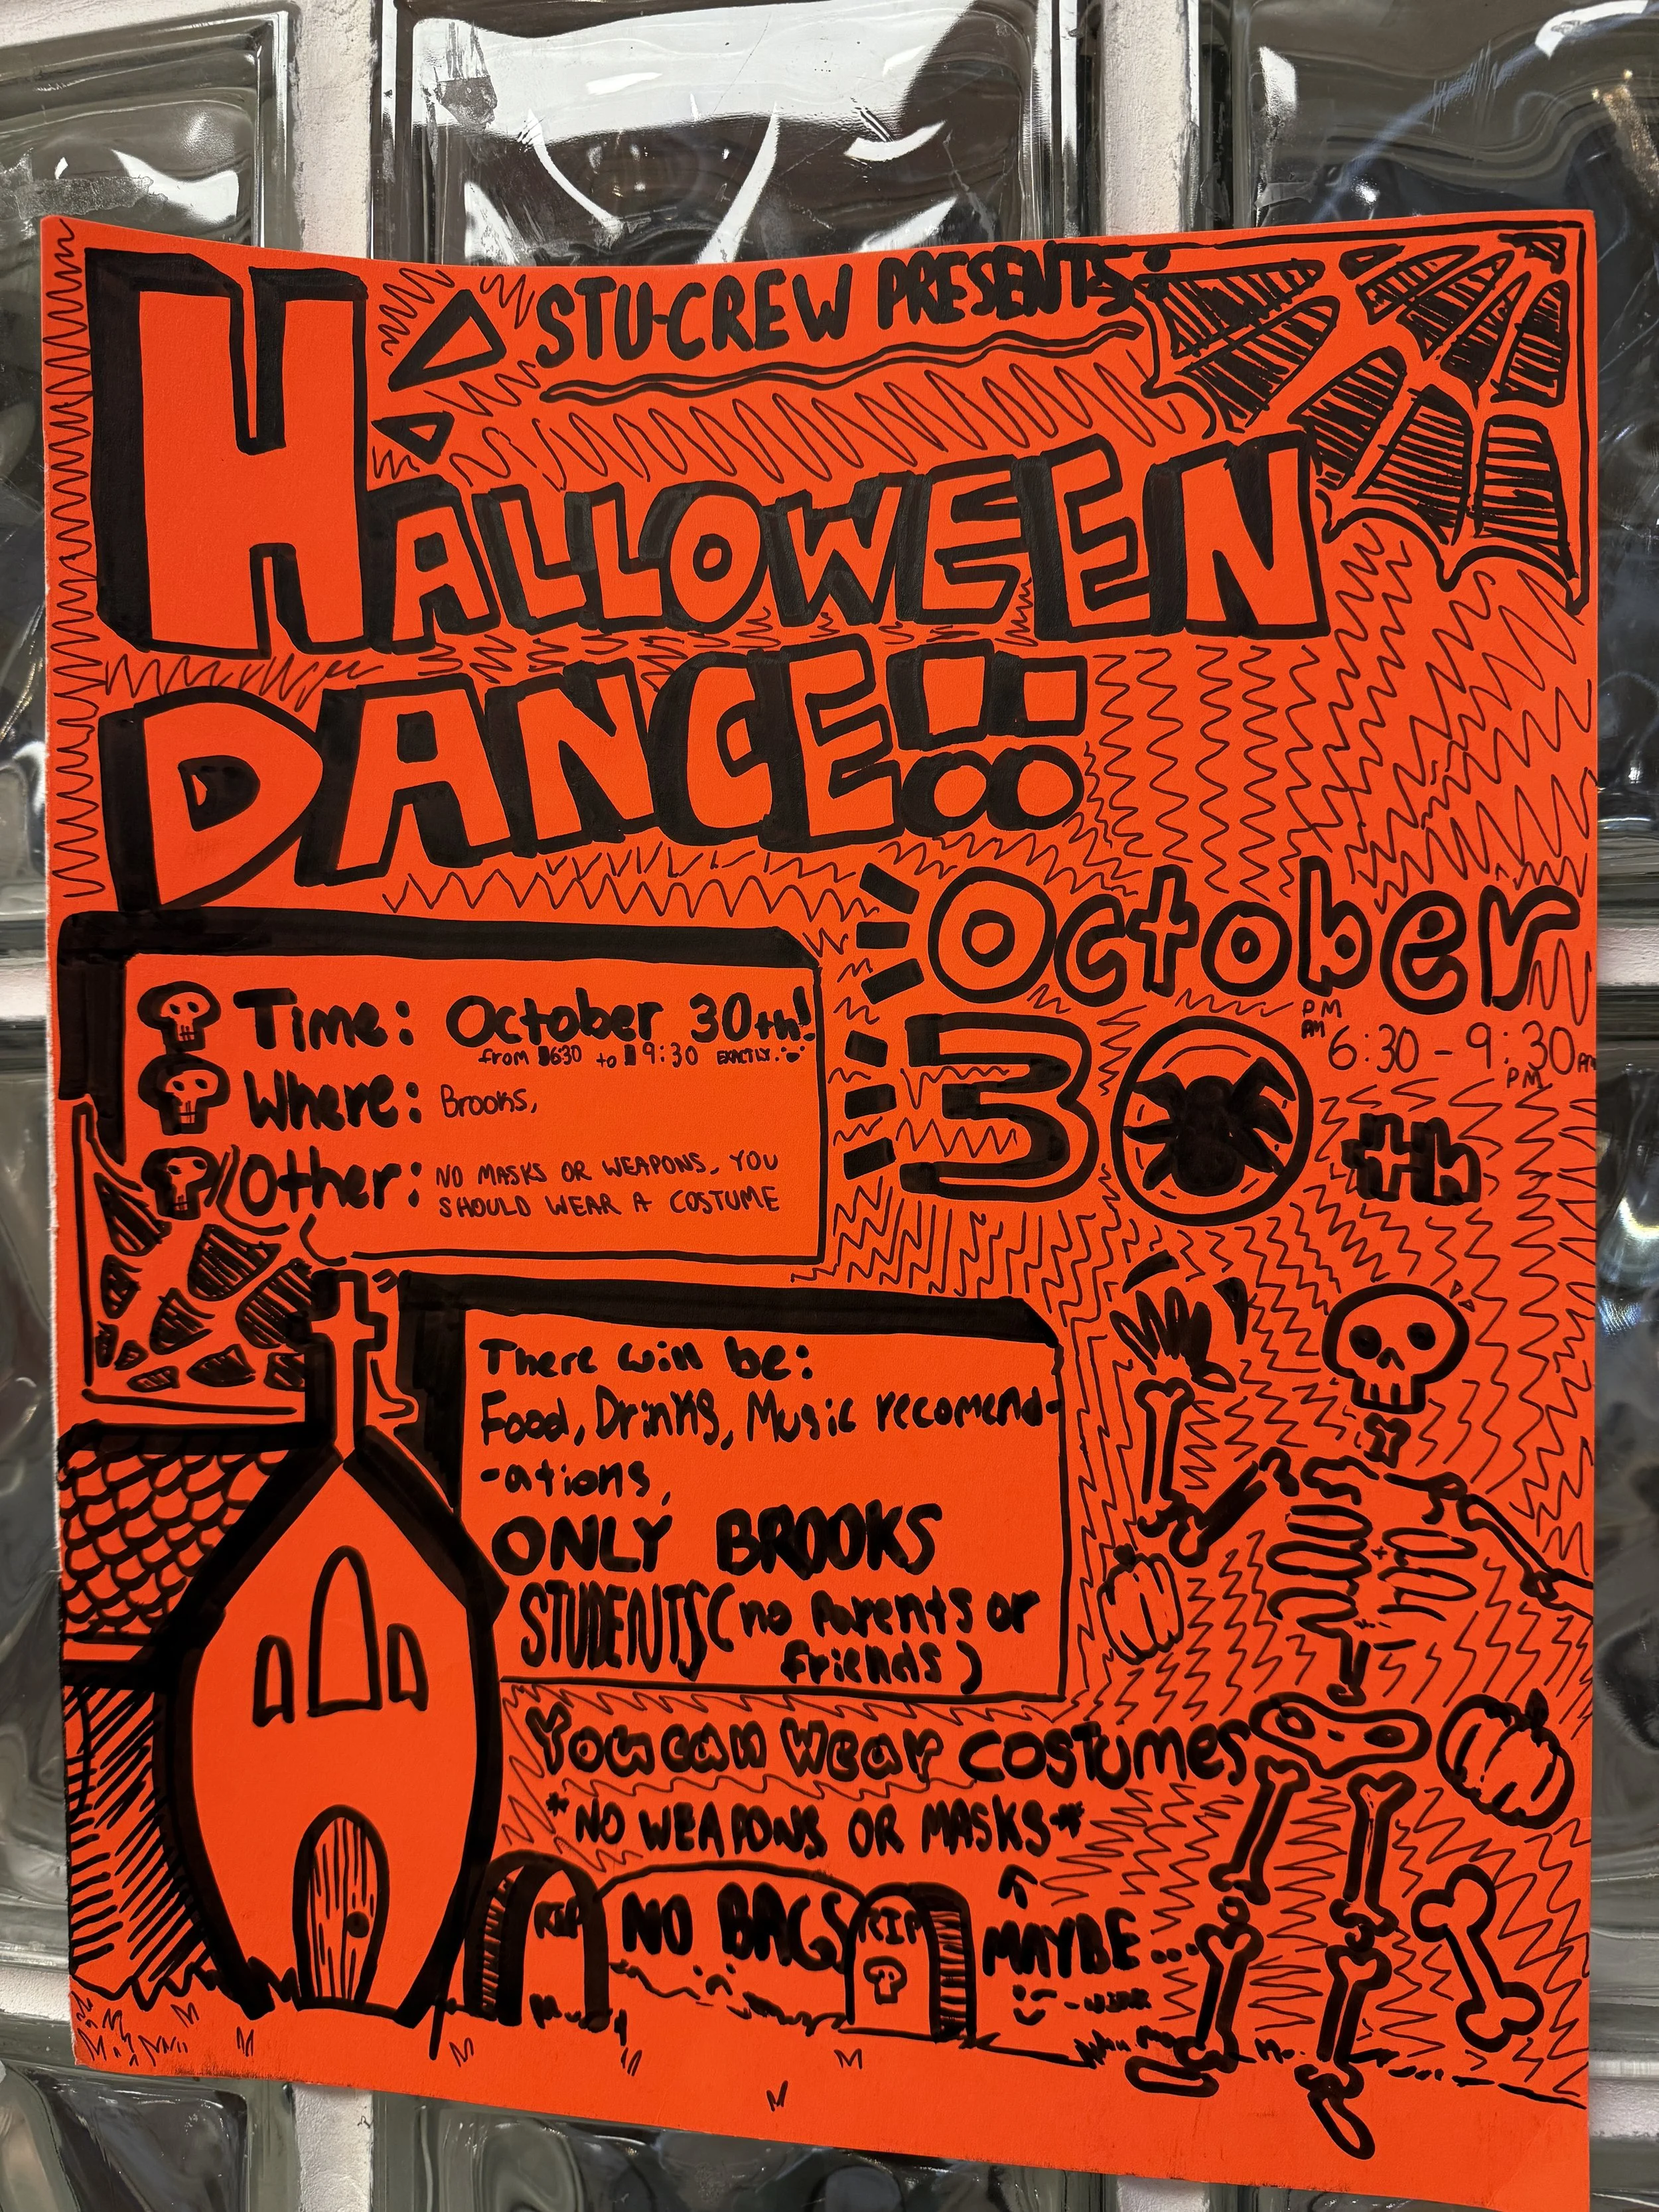 STU-CREW PRESENTS:
HALLOWEEN
DANCE!!
October
30th
PM
AM 6:30 - 9:30 AM
PM
Time: October 30th!
from 6:30 to 9:30 EXACTLY.
Where: Brooks,
Other: NO MASKS OR WEAPONS, YOU
SHOULD WEAR A COSTUME
There will be:
Food, Drinks, Music recomend-
-ations,
ONLY BROOKS
STUDENTS (no parents or
friends)
You can wear costumes
*NO WEAPONS OR MASKS*
RIP NO BAGS RIP
MAYBE...